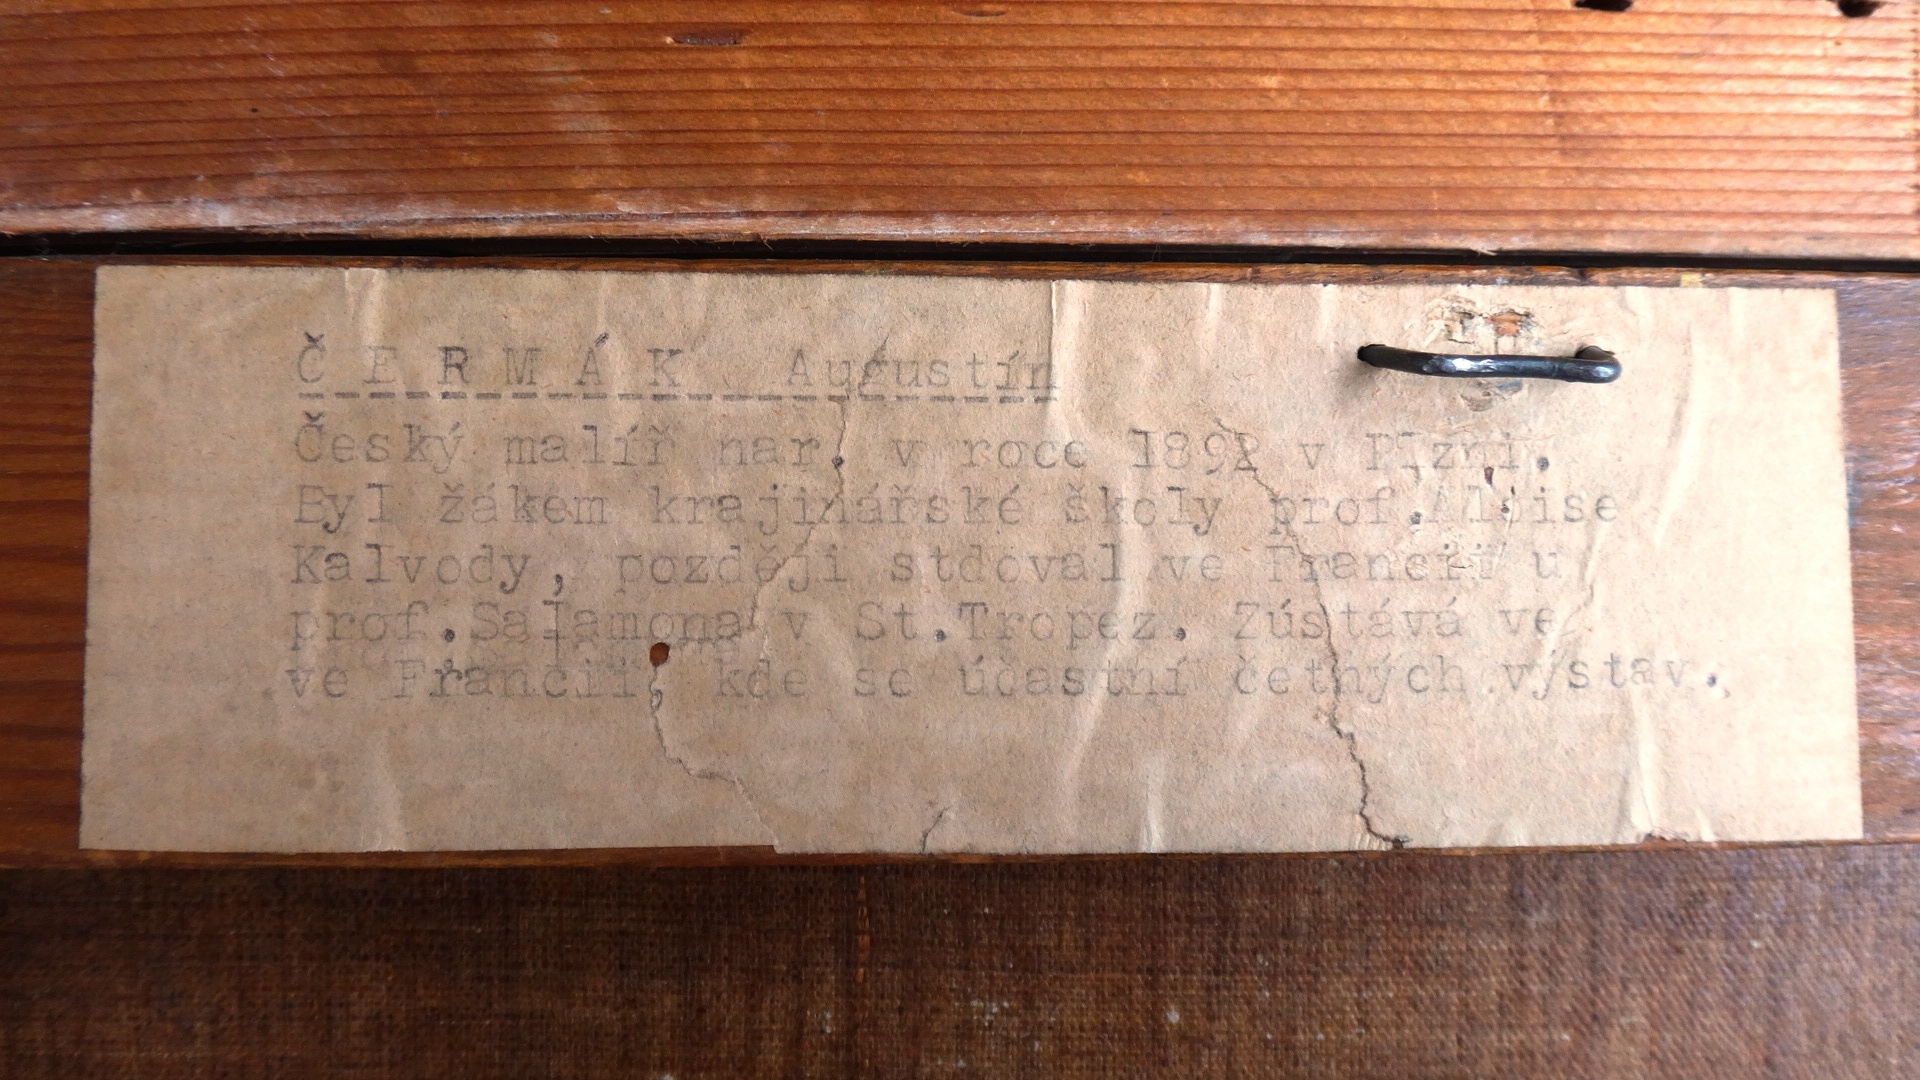 Č E R M Á K Augustín
Český malíř nar. v roce 1892 v Plzni.
Byl žákem krajinářské školy prof.Aloise
Kalvody, později stdoval ve Francii u
prof.Salamona v St.Tropez. Zústává ve
ve Francii kde se účastní četných výstav.